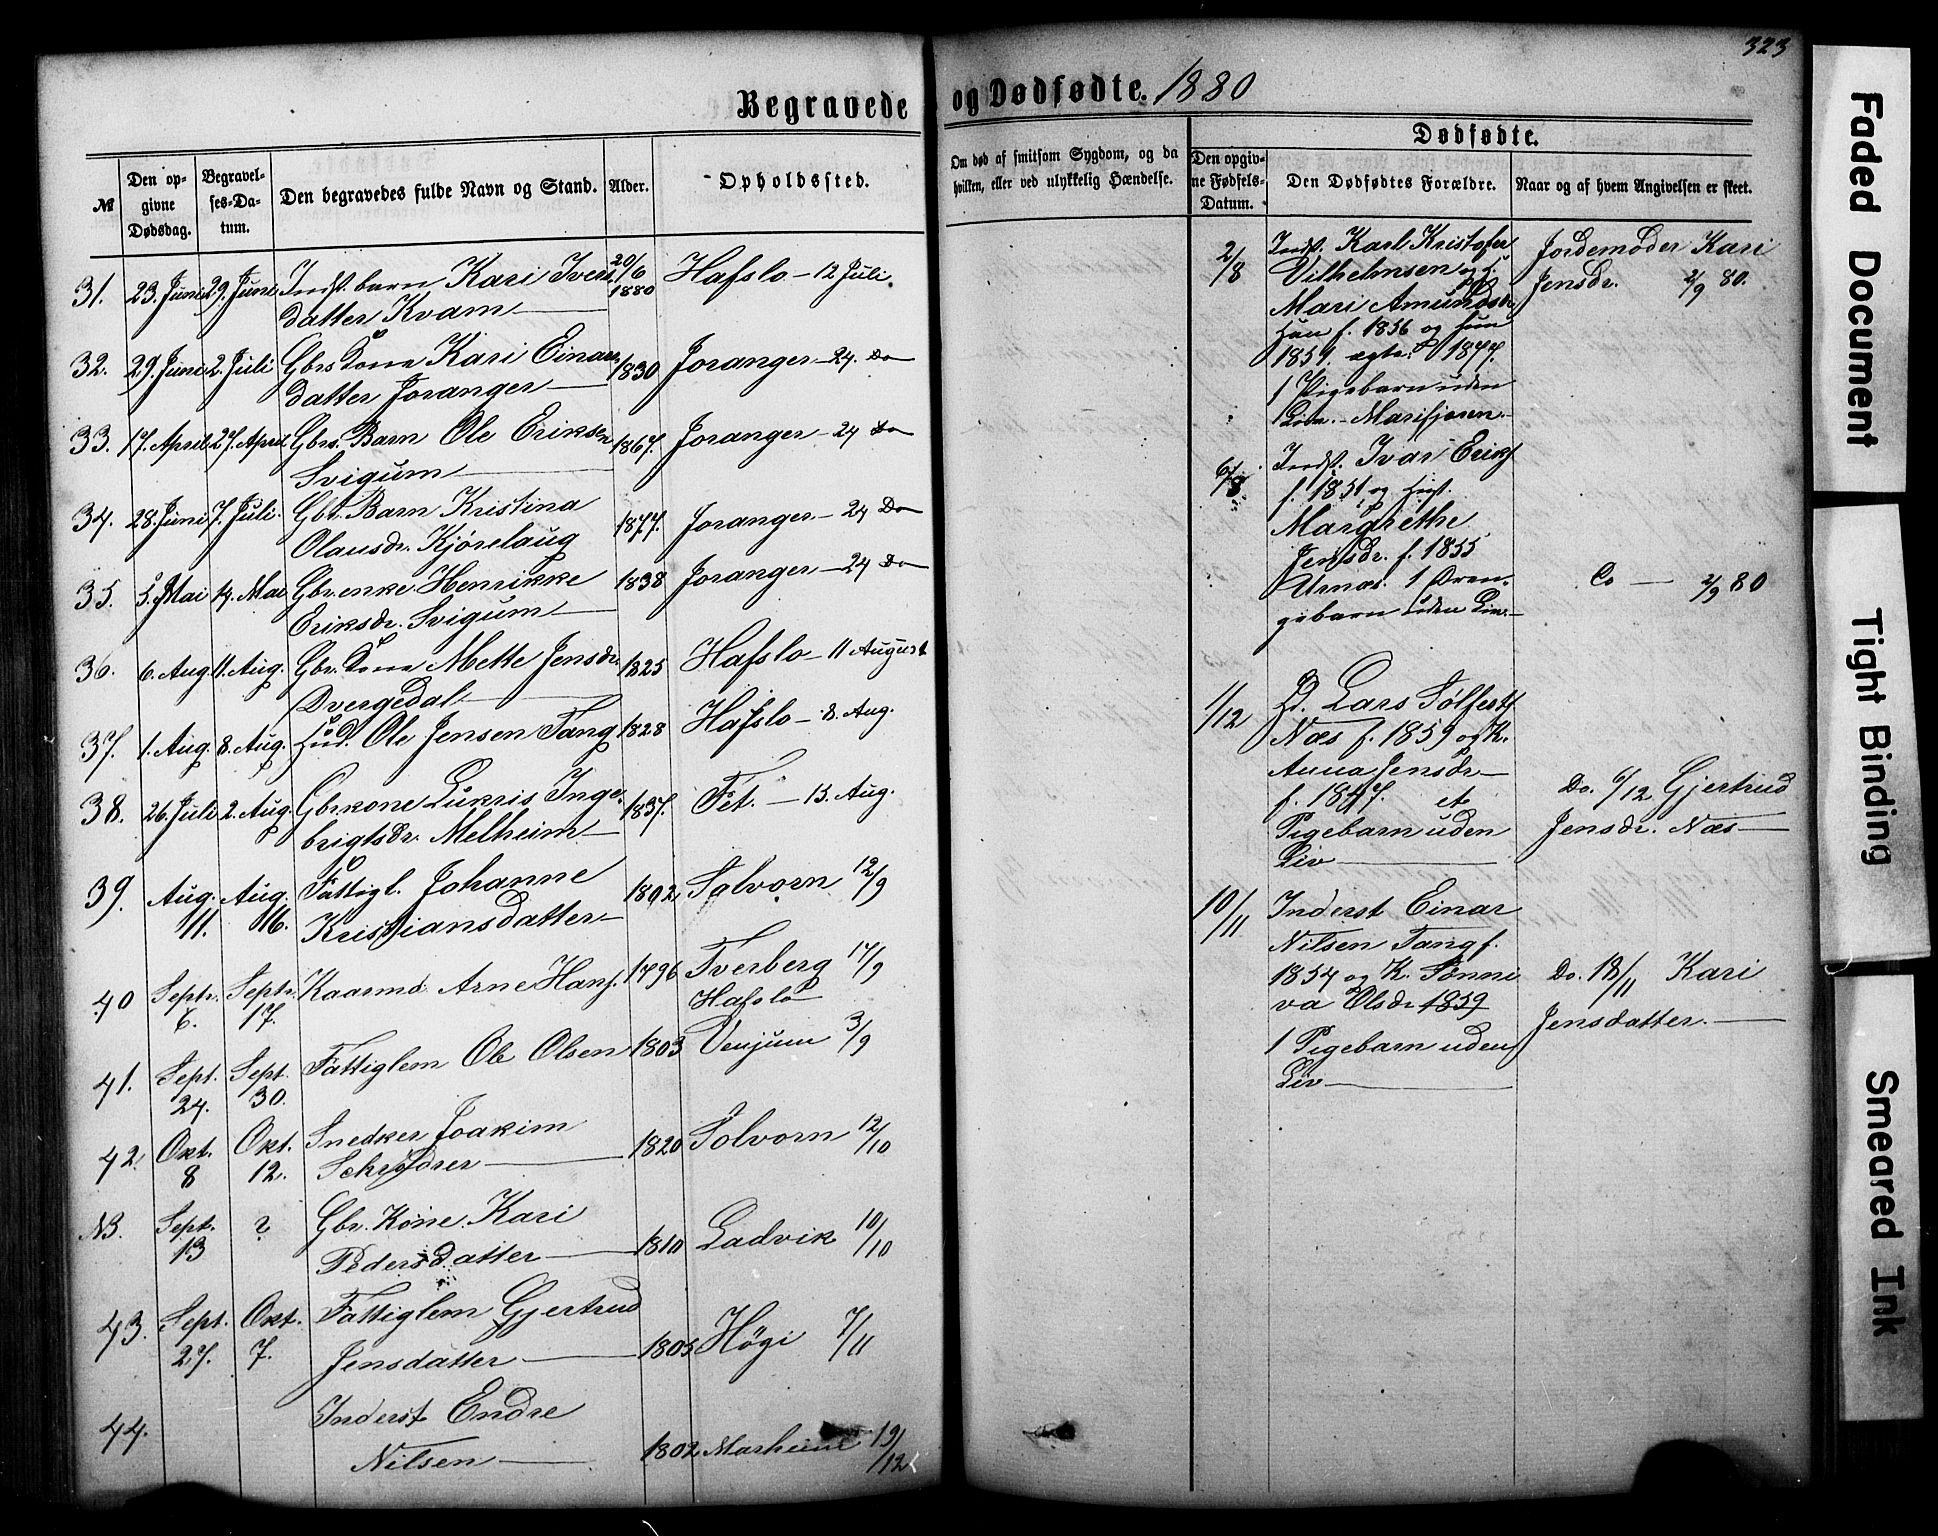 323
Begravede og Dødfødte. 1880
№
Den opgivne Dødsdag.
Begravelses-Datum.
Den begravedes fulde Navn og Stand.
Alder.
Opholdssted.
31. 23. Juni 29. Juni Indst. barn Kari Ivers 20/6 1880 Hafslo – 12 Juli.
datter Kvam
32. 29. Juni 2. Juli Gbrs Kone Kari Einars 1830 Joranger – 24. Do
datter Joranger
33. 17. April 27. April Gbrs. Barn Ole Eriksen 1867. Joranger – 24 Do
Svigum
34. 28. Juni 7. Juli. Gbr. Barn Kristina 1877. Joranger – 24 Do
Olausdr. Kjørelaug
35. 5. Mai 14. Mai Gbr. enke Henrikke 1838 Joranger – 24 Do
Eriksdr. Svigum
36. 6. Aug. 11. Aug. Gbr. Kone Mette Jensdr. 1825 Hafslo – 11 August
Dvergedal
37. 1. Aug. 8. Aug. Hud. Ole Jensen Tang 1828 Hafslo – 8. Aug.
38. 26. Juli 2. Aug. Gbrkone Lukris Inge- 1837. Fet. – 15. Aug.
brigtsdr. Melheim
39. Aug. 11. Aug. 16. Fattigl. Johanne 1802 Solvorn 12/9
Kristiansdatter
40 Septr. 6. Septr. 17. Kaarmd Arne Hans. 1796 Tverberg 17/9
Hafslo
41. Sept. 24. Sept. 30. Fattiglem Ole Olsen 1803 Venjum 3/9
42. Okt. 8 Okt. 12. Snedker Joakim 1820 Solvorn 12/10
Schrøder
NB. Sept. 13 ? Gbr. Kone. Kari
Pedersdatter 1810 Ladvik 10/10
43. Sept. 27. Okt. 7. Fattiglem Gjertrud
Jensdatter 1805 Høgi 7/11
44. Inderst Endre
Nilsen 1802 Marheim 19/12
Om død af smitsom Sygdom, og da
hvilken, eller ved ulykkelig Hændelse.
Dødfødte.
Den opgivne Fødsels-Datum.
Den Dødfødtes Forældre.
Naar og af hvem Angivelsen er skeet.
2/8 Indst. Karl Kristofer Jordemoder Kari
Vilhelmsen og H. Jensdr. 2/9 80.
Mari Amundsdr
Han f. 1856 og hun
1859. ægtv. 1877.
1 Pigebarn uden
Liv. – Marifjøren.
6/8. Indst. Ivar Eriks.
f. 1851 og Hust.
Margrethe
Jensdr. f. 1855
Urnæs. 1 Dren- Co — 2/9 80
gebarn uden Liv.
1/12 Lars Sølfests.
Næs f. 1859 og K.
Anna Jensdr
f. 1847. et Do. 6/12 Gjertrud
Pigebarn uden Jensdr. Næs
Liv
10/11 Inderst Einar
Nilsen Tang f.
1854 og K. Synne- Do. 18/11 Kari
va Olsdr 1859 Jensdatter.
1 Pigebarn uden
Liv
Faded Document
Tight Binding
Smeared Ink